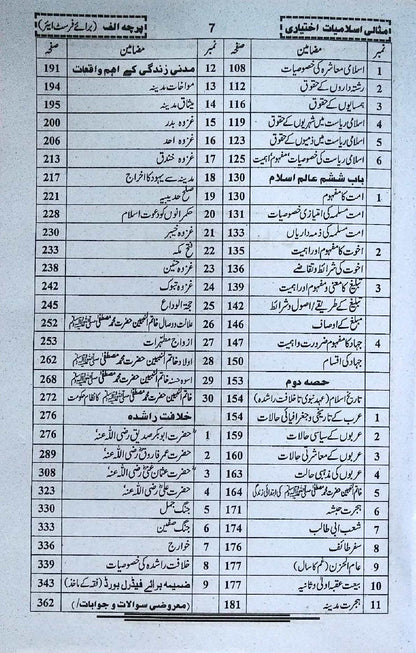 مثالی اسلامیات اختیاری
7
پرچہ الف (برائے فرسٹ ایئر)
نمبر مضامین صفحہ
1 اسلامی معاشرہ کی خصوصیات 108
2 رشتہ داروں کے حقوق 112
3 ہمسایوں کے حقوق 114
4 اسلامی ریاست میں شہریوں کے حقوق 116
5 اسلامی ریاست میں ذمیوں کے حقوق 123
6 اسلامی ریاست کی خصوصیات مفہوم اہمیت 125
باب ششم عالم اسلام 130
1 امت کا مفہوم 130
امت مسلمہ کی امتیازی خصوصیات 131
امت مسلمہ کی ذمہ داریاں 133
2 اخوت کا مفہوم اور اہمیت 135
اخوت کی شرائط و تقاضے 136
3 تبلیغ کا معنی و مفہوم اور اہمیت 139
تبلیغ کے طریقے / اصول و شرائط 142
مبلغ کے اوصاف 146
4 جہاد کا مفہوم ضرورت و اہمیت 147
جہاد کی اقسام 150
حصہ دوم 153
تاریخ اسلام (عہد نبوی تا خلافت راشدہ) 154
1 عرب کے تاریخی و جغرافیائی حالات 154
2 عربوں کے سیاسی حالات 159
3 عربوں کے معاشرتی حالات 160
4 عربوں کی مذہبی حالت 163
5 خاتم النبیین حضرت محمد مصطفی ﷺ کی ابتدائی زندگی 164
6 ہجرت حبشہ 171
7 شعب ابی طالب 174
8 سفر طائف 176
9 عام الحزن (غم کا سال) 177
10 بیعت عقبہ اولی و ثانیہ 177
11 ہجرت مدینہ 181
نمبر مضامین صفحہ
12 مدنی زندگی کے اہم واقعات 191
13 مواخات مدینہ 194
14 میثاق مدینہ 195
15 غزوہ بدر 200
16 غزوہ احد 206
17 غزوہ خندق 213
18 مدینہ سے یہود کا اخراج 217
19 صلح حدیبیہ 221
20 حکمرانوں کو دعوت اسلام 228
21 غزوہ خیبر 230
22 فتح مکہ 233
23 غزوہ حنین 238
24 غزوہ تبوک 242
25 حجۃ الوداع 245
26 علالت و وصال خاتم النبیین حضرت محمد مصطفی ﷺ 252
27 ازواج مطہرات 253
28 اولاد خاتم النبیین حضرت محمد مصطفی ﷺ 262
29 اسوہ حسنہ خاتم النبیین حضرت محمد مصطفی ﷺ 268
30 خاتم النبیین حضرت محمد مصطفی ﷺ کا نظام حکومت 272
خلافت راشدہ 276
1 حضرت ابوبکر صدیق رضی اللہ عنہ 276
2 حضرت عمر فاروق رضی اللہ عنہ 289
3 حضرت عثمان غنی رضی اللہ عنہ 308
4 حضرت علی رضی اللہ عنہ 323
5 جنگ جمل 330
6 جنگ صفین 333
7 خوارج 336
8 خلافت راشدہ کی خصوصیات 339
9 ضمیمہ برائے فیڈرل بورڈ (فقہ کے ماخذ) 343
(معروضی سوالات و جوابات)/ 362